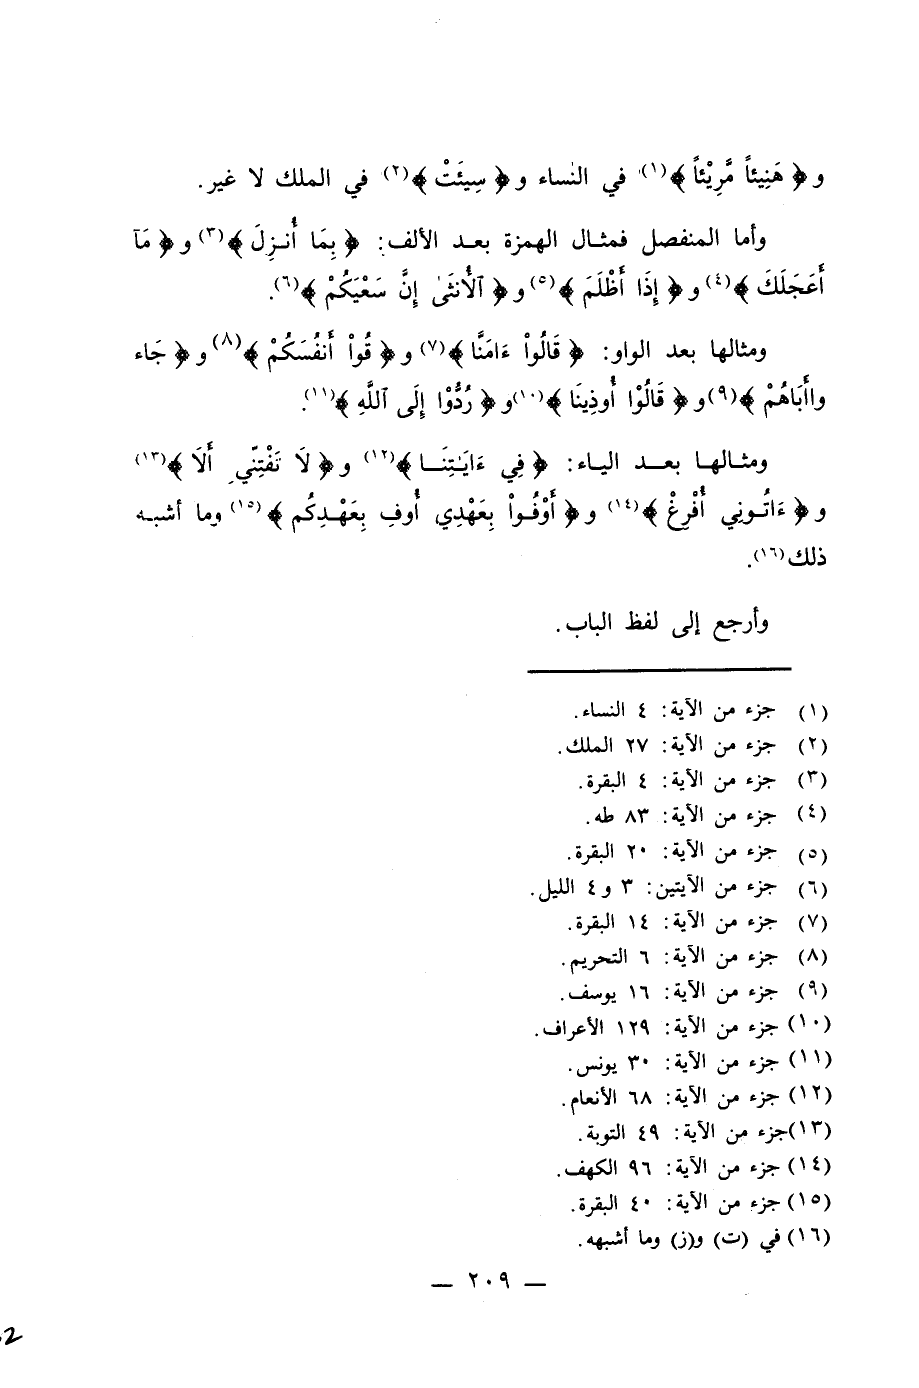 و﴿ هَنِيئاً مَّرِيْئاً ﴾(١) في النساء و﴿ سِيئَتْ ﴾(٢) في الملك لا غير.
وأما المنفصل فمثال الهمزة بعد الألف: ﴿ بِمَا أُنزِلَ ﴾(٣) و﴿ مَآ
أَعَجَلَكَ ﴾(٤) و﴿ إِذَا أَظْلَمَ ﴾(٥) و﴿ ٱلْأُنثَىٰ إِنَّ سَعْيَكُمْ ﴾(٦).
ومثالها بعد الواو: ﴿ قَالُواْ ءَامَنَّا ﴾(٧) و﴿ قُواْ أَنفُسَكُمْ ﴾(٨) و﴿ جَاء
واأَبَاهُمْ ﴾(٩) و﴿ قَالُوْا أُوذِينَا ﴾(١٠) و﴿ رُدُّوْا إِلَى ٱللَّهِ ﴾(١١).
ومثالها بعد الياء: ﴿ فِي ءَايَـٰتِنَـا ﴾(١٢) و﴿ لَا تَفْتِنّي أَلَا ﴾(١٣)
و﴿ ءَاتُونِي أُفْرِغْ ﴾(١٤) و﴿ أَوْفُواْ بِعَهْدِي أُوفِ بِعَهْدِكُم ﴾(١٥) وما أشبه
ذلك(١٦).
وأرجع إلى لفظ الباب.
(١) جزء من الآية: ٤ النساء.
(٢) جزء من الآية: ٢٧ الملك.
(٣) جزء من الآية: ٤ البقرة.
(٤) جزء من الآية: ٨٣ طه.
(٥) جزء من الآية: ٢٠ البقرة.
(٦) جزء من الآيتين: ٣ و٤ الليل.
(٧) جزء من الآية: ١٤ البقرة.
(٨) جزء من الآية: ٦ التحريم.
(٩) جزء من الآية: ١٦ يوسف.
(١٠) جزء من الآية: ١٢٩ الأعراف.
(١١) جزء من الآية: ٣٠ يونس.
(١٢) جزء من الآية: ٦٨ الأنعام.
(١٣)جزء من الآية: ٤٩ التوبة.
(١٤) جزء من الآية: ٩٦ الكهف.
(١٥) جزء من الآية: ٤٠ البقرة.
(١٦) في (ت) و(ز) وما أشبهه.
— ٢٠٩ —